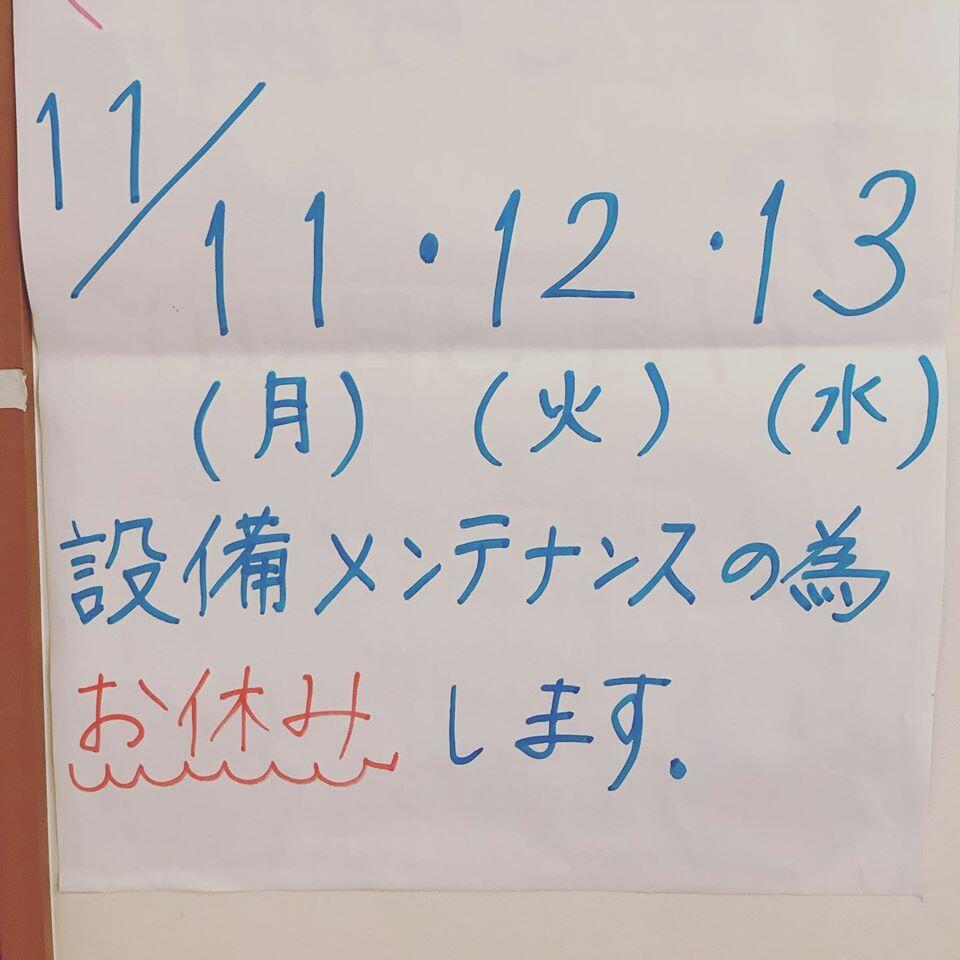 11/11・12・13
(月) (火) (水)
設備メンテナンスの為
お休みします.